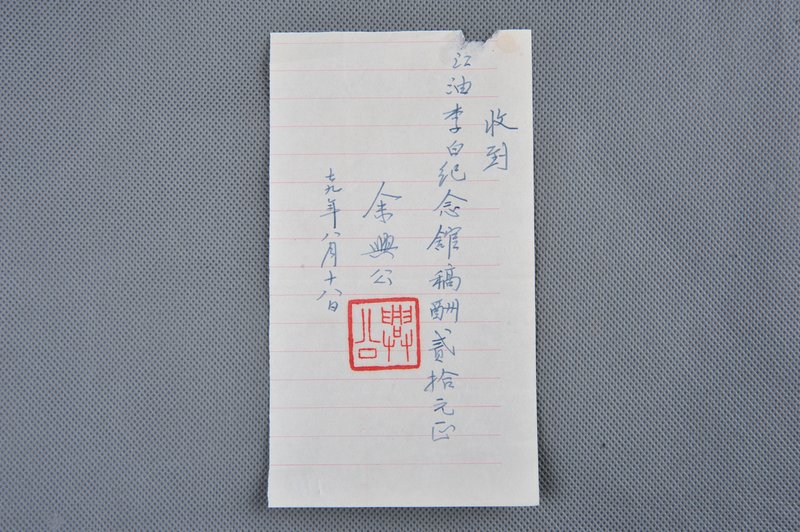 收到
江油李白纪念館稿酬贰拾元正
余興公
七九年八月十八日
興公